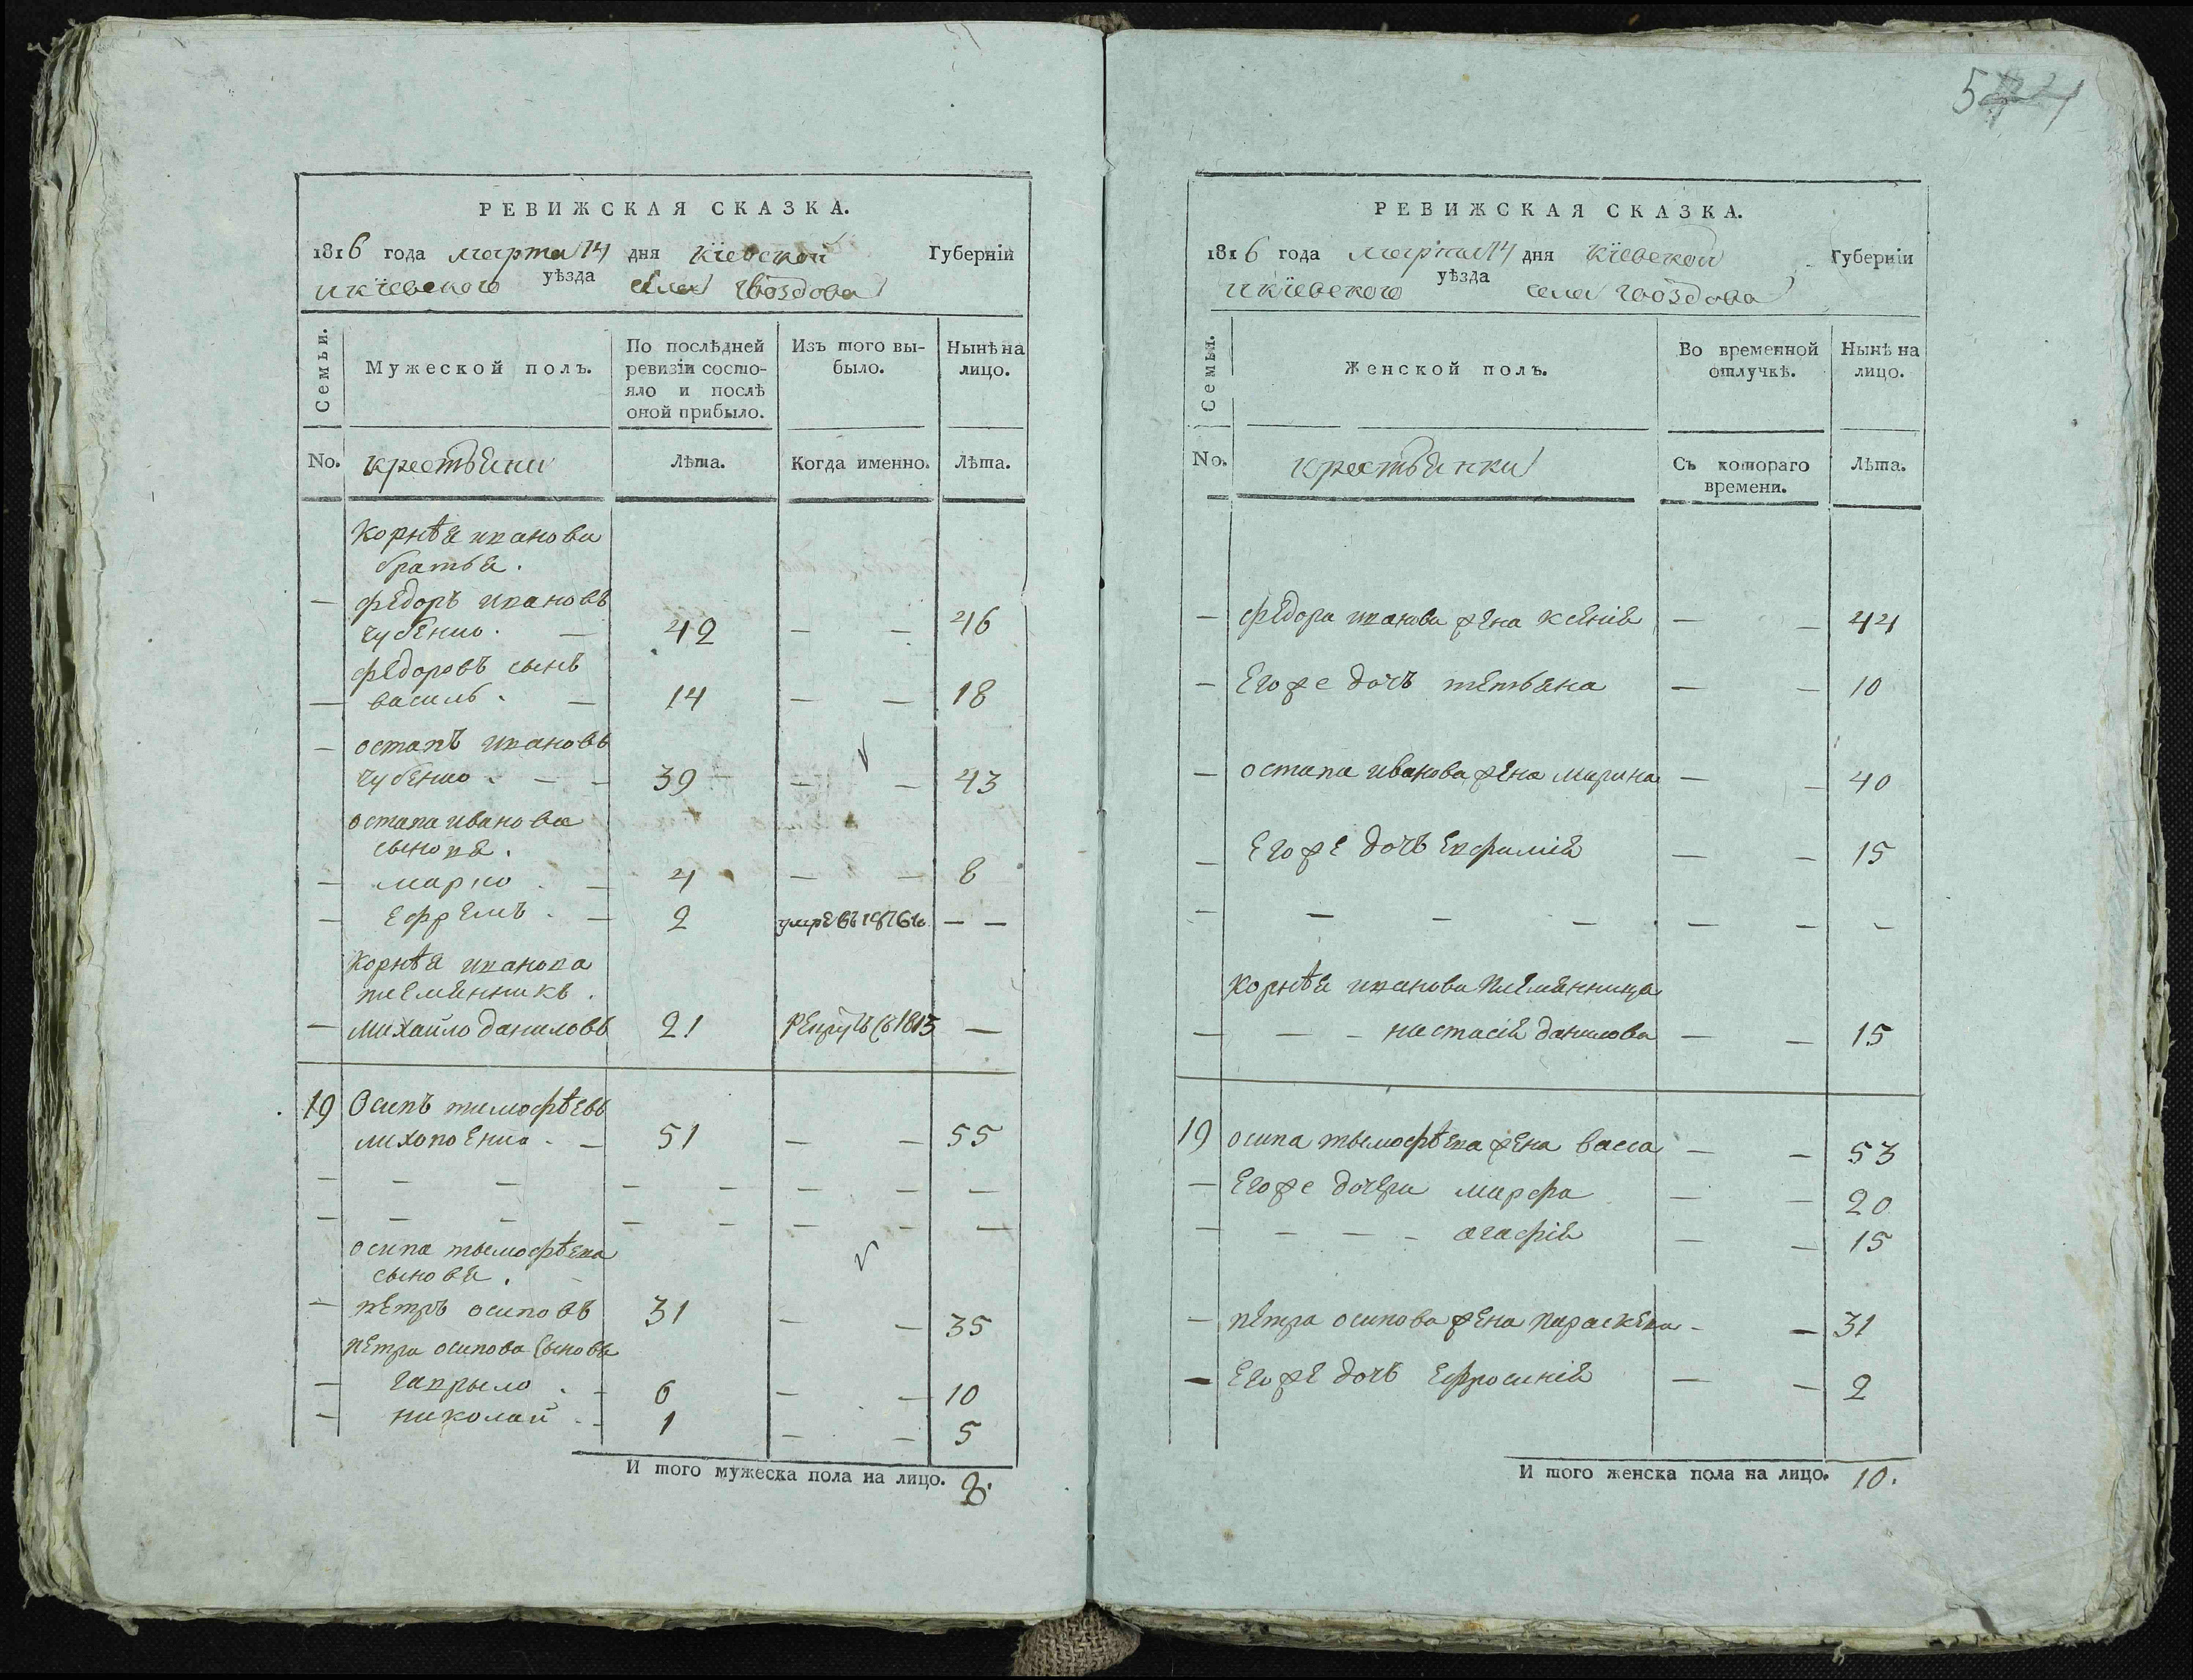 РЕВИЖСКАЯ СКАЗКА.
1816 года марта 14 дня Кіевской Губерніи
и кіевского уѣзда села Гвоздова
Семьи.
Мужеской полъ.
По послѣдней ревизіи состо-
яло и послѣ
оной прибыло.
Изъ того вы-
было.
Нынѣ на
лицо.
No. крестьяни Лѣта. Когда именно. Лѣта.
Корнѣя иванова
братья.
— федоръ ивановъ
чубенко. — 42 — — 46
федоровъ сынъ
— василь. — 14 — — 18
— остапъ ивановъ
чубенко. — — 39 — — — 43
остапа иванова
сыновя.
— марко. — 4 — — 8
— ефремъ. — 2 умре въ 1816го — —
Корнѣя иванова
племянникъ.
— михайло даниловъ 21 рекрутъ въ 1813 —
19 Осипъ тимофѣевъ
лихопоенко. — 51 — — 55
— — — — — — — —
— — — — — — — —
осипа тымофѣева
сыновя.
— петръ осиповъ 31 — — 35
петра осипова сыновя
— гаврыло. — 6 — — 10
— николай. — 1 — — 5
И того мужеска пола на лицо. 8.
РЕВИЖСКАЯ СКАЗКА.
1816 года марта 14 дня Кіевской Губерніи
и кіевского уѣзда села Гвоздова
Семьи.
Женской полъ.
Во временной
отлучкѣ.
Нынѣ на
лицо.
No. крестьянки Съ котораго
времени. Лѣта.
— федора иванова жена ксенія — — 44
— Его же дочъ тетьяна — — 10
— остапа иванова жена марина — — 40
— Его же дочъ Евфимія — — 15
— — — — — — —
Корнѣя иванова племянница
— — — настасія данилова — — 15
19 осипа тымофѣева жена васса — — 53
— Его же дочери марфа — — 20
— — — — агафія — — 15
— петра осипова жена параскева — — 31
— Его же дочъ Ефросинія — — 2
И того женска пола на лицо. 10.